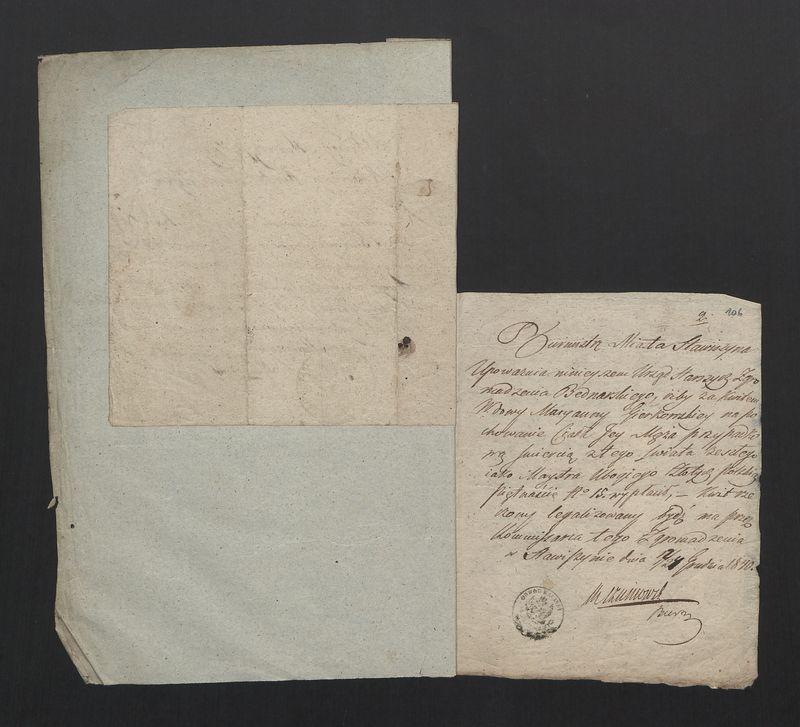 2. 106
Burmistrz Miasta Stawiszyna
Upoważnia ninieyszem Urząd Starszych Zgro
madzenia Bednarskiego, iżby za kwitem
Wdowy Maryanny na po
chowanie Ciała Jey Męża przypadko
wą śmiercią z tego świata zeszłego
iako Maystra Ubogiego Złotych polskich
piętnaście No 15. wypłacił, – kwit rze
czony legalizowany bydź ma przez
Kommissarza tego Zgromadzenia
w Stawiszynie dnia Grudnia 1840.
Burm